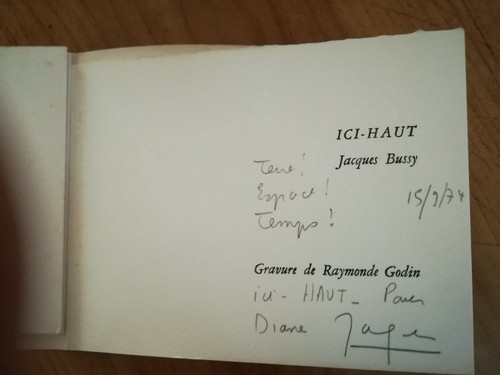 ICI-HAUT
Jacques Bussy
Terre!
Espace!
15/9/74
Temps!
Gravure de Raymonde Godin
ici-HAUT- Pour
Diane Jacques